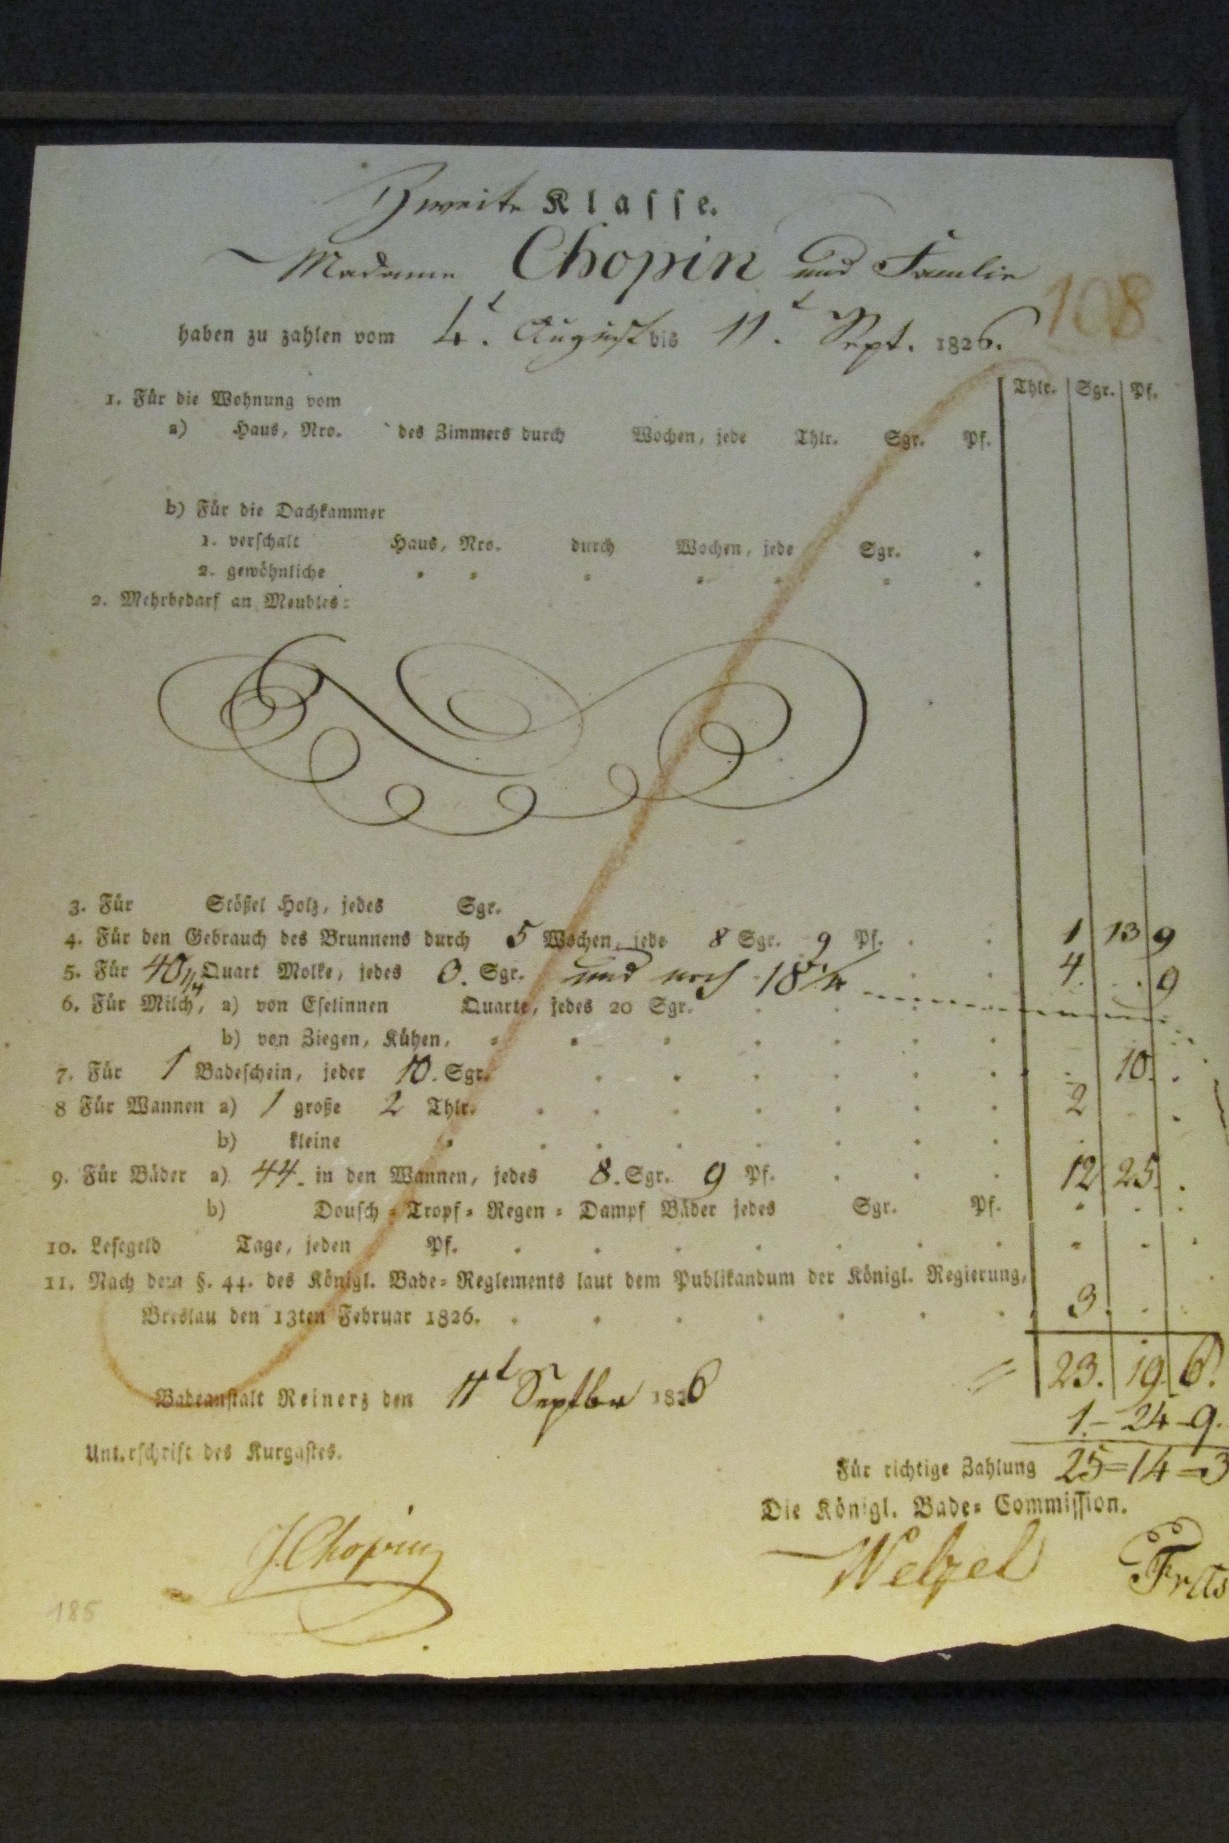 Zweite Klasse.
Madame Chopin und Familie
108
haben zu zahlen vom 4t. August bis 11t. Sept. 1826.
Thlr. Sgr. Pf.
1. Für die Wohnung vom
a) Haus, Nro. des Zimmers durch Wochen, jede Thlr. Sgr. Pf.
b) Für die Dachkammer
1. verschalt Haus, Nro. durch Wochen, jede Sgr.
2. gewöhnliche
2. Mehrbedarf an Meubles:
3. Für Stößel Holz, jedes Sgr.
4. Für den Gebrauch des Brunnens durch 5 Wochen, jede 8 Sgr. 9 Pf. 1 13 9
5. Für 40 1/4 Quart Molke, jedes 0. Sgr. und noch 4. 9
6. Für Milch, a) von Eselinnen Quarte, jedes 20 Sgr.
b) von Ziegen, Kühen,
7. Für 1 Badeschein, jeder 10. Sgr. 10.
8 Für Wannen a) 1 große 2 Thlr. 2
b) kleine
9. Für Bäder a) 44. in den Wannen, jedes 8. Sgr. 9 Pf. 12 25.
b) Dousch- Tropf- Regen- Dampf Bäder jedes Sgr. Pf.
10. Lesegeld Tage, jeden Pf.
11. Nach dem §. 44. des Königl. Bade-Reglements laut dem Publikandum der Königl. Regierung,
Breslau den 13ten Februar 1826. 3.
= 23. 19. 6.
Badeanstalt Reinerz den 11t Septbr 1826
1.- 24-9.
Unterschrift des Kurgastes.
Für richtige Zahlung 25=14=3
Die Königl. Bade-Commission.
J. Chopin
Welzel
185